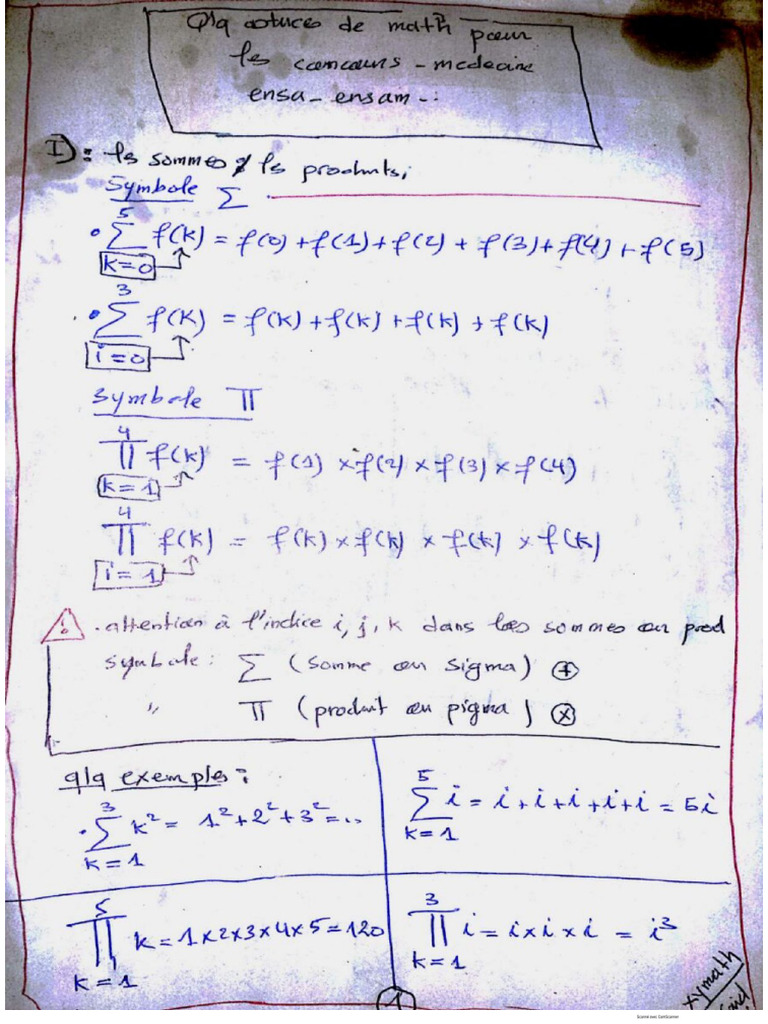 Qlq astuces de math pour
les concours - medecine
ensa - ensam - :
I) : les sommes & les produits;
Symbole Σ
• \sum_{k=0}^{5} f(k) = f(0) + f(1) + f(2) + f(3) + f(4) + f(5)
• \sum_{i=0}^{3} f(k) = f(k) + f(k) + f(k) + f(k)
symbole Π
\prod_{k=1}^{4} f(k) = f(1) × f(2) × f(3) × f(4)
\prod_{i=1}^{4} f(k) = f(k) × f(k) × f(k) × f(k)
⚠ . attention à l'indice i, j, k dans les sommes ou prod
symbole : Σ (somme ou sigma) ⊕
" Π (produit ou pigma) ⊗
qlq exemples :
• \sum_{k=1}^{3} k² = 1² + 2² + 3² = ...
\sum_{k=1}^{5} i = i + i + i + i + i = 5i
\prod_{k=1}^{5} k = 1 × 2 × 3 × 4 × 5 = 120
\prod_{k=1}^{3} i = i × i × i = i³
1
xymath
Scanné avec CamScanner